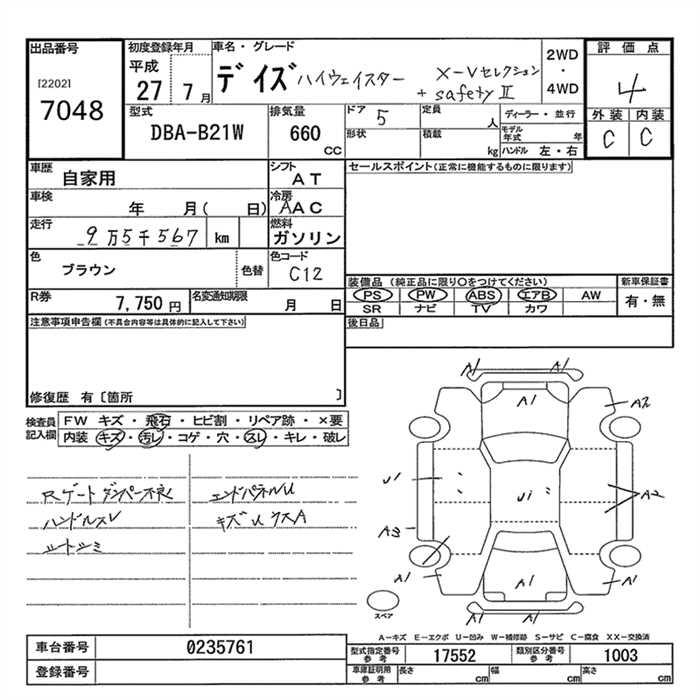 出品番号
[2202]
7048
初度登録年月
平成
27 7月
車名・グレード
デイズ ハイウェイスター X-Vセレクション
+ safety II
2WD
・
4WD
評価点
4
外装 内装
C C
型式
DBA-B21W
排気量
660
CC
ドア 5
定員 人
形状
積載 kg
ディーラー・並行
モデル年式 年
ハンドル 左・右
車歴
自家用
シフト
AT
車検
年 月( 日)
冷房
AAC
走行
9万5千567 km
燃料
ガソリン
色
ブラウン
色替
色コード
C12
R券
7,750円
名変通知期限
月 日
セールスポイント(正常に機能するものに限ります)
装備品(純正品に限り○をつけてください)
PS PW ABS エアB AW
SR ナビ TV カワ
新車保証書
有・無
後日品
注意事項申告欄(不具合内容等は具体的に記入して下さい)
修復歴 有〔箇所 〕
検査員
記入欄
FW キズ・飛石・ヒビ割・リペア跡・×要
内装 キズ・汚レ・コゲ・穴・スレ・キレ・破レ
Rゲートダンパー不良
ハンドルスレ
シートシミ
エンドパネルU
キズUウスA
A1 A1
A1
A2
U1
Ui
A2
A3
A1
A1
A1
A1 A1
スペア
A-キズ E-エクボ U-凹み W-補修跡 S-サビ C-腐食 XX-交換済
車台番号
0235761
登録番号
型式指定番号
参考
17552
類別区分番号
参考
1003
車庫証明用
参考
長さ cm
幅 cm
高さ cm